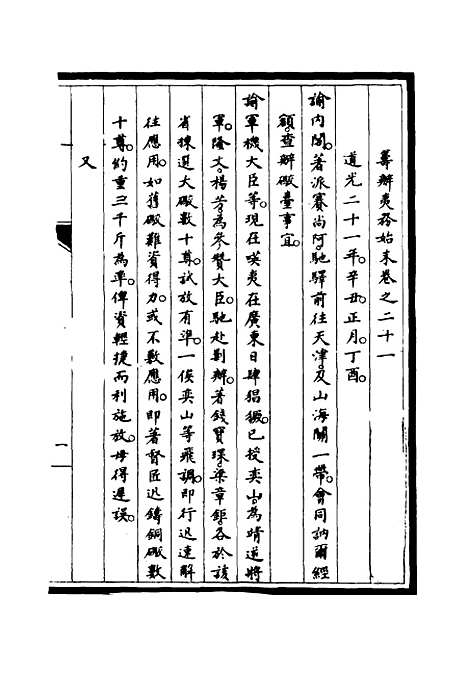 籌辦夷務始末卷之二十一
道光二十一年。辛丑。正月。丁酉。
諭內閣。著派賽尚阿。馳驛前往天津。及山海關一帶。會同訥爾經
額。查辦礮臺事宜。
諭軍機大臣等。現在𠸄夷在廣東日肆猖獗。已授奕山。為靖逆將
軍。隆文。楊芳。為參贊大臣。馳赴勦辦。著錢寶琛。梁章鉅。各於該
省揀選大礮數十尊。試放有準。一俟奕山等飛調。即行迅速解
往應用。如舊礮難資得力。或不敷應用。即著督匠迅鑄銅礮數
十尊。約重三千斤為準。俾資輕捷而利施放。毋得遲誤。
又
一